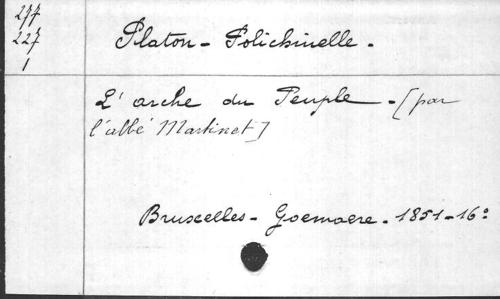 277
227
1
Platon - Polichinelle.
L'arche du Peuple - [par
l'abbé Martinet]
Bruxelles - Goemaere - 1851 - 16°